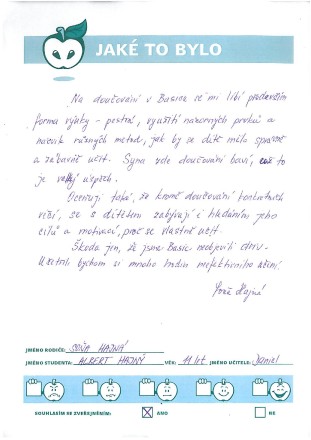 JAKÉ TO BYLO
Na doučování v Basicu se mi líbí především
forma výuky - pestrá, využití názorných prvků a
nácvik různých metod, jak by se dítě mělo správně
a zábavně učit. Syna zde doučování baví, což to
je velký úspěch.
Oceňuji také, že kromě doučování konkrétních
věcí, se s dítětem zabývají i hledáním jeho
cílů a motivací, proč se vlastně učit.
Škoda jen, že jsme Basic neobjevili dřív.
Ušetřili bychom si mnoho hodin neefektivního učení.
Soňa Hajná
JMÉNO RODIČE: SOŇA HAJNÁ
JMÉNO STUDENTA: ALBERT HAJNÝ VĚK: 11 let JMÉNO UČITELE: Daniel
SOUHLASÍM SE ZVEŘEJNĚNÍM: X ANO NE